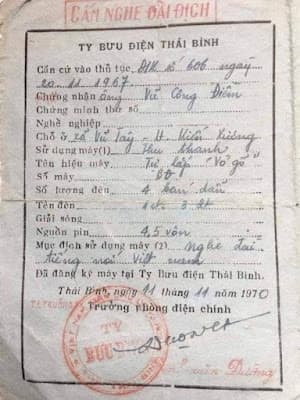 CẤM NGHE ĐÀI ĐỊCH
TY BƯU ĐIỆN THÁI BÌNH
Căn cứ vào thủ tục ĐK số 606 ngày
20-11-1967
Chứng nhận ông Vũ Công Điềm
Chứng minh thư số
Nghề nghiệp
Chỗ ở xã Vũ Tây - H. Kiến Xương
Sử dụng máy(1) Thu thanh
Tên hiệu máy Tự lắp "Vỏ gỗ"
Số máy
Số lượng đèn 4 bán dẫn
Tên đèn
Giải sóng
Nguồn pin 4,5 vôn
Mục đích sử dụng máy (2) nghe đài
tiếng nói Việt nam
Đã đăng ký máy tại Ty Bưu điện Thái Bình.
Thái Bình, ngày 11 tháng 11 năm 1970
Trưởng phòng điện chính
TY
BƯU ĐIỆN